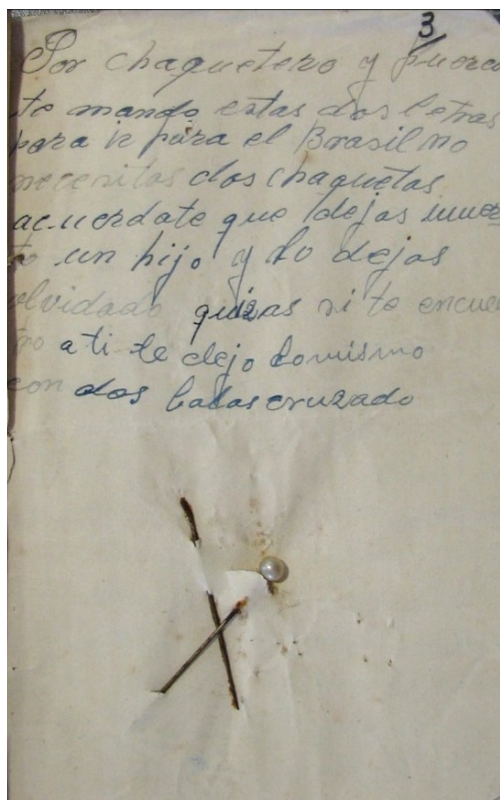 3
Por chaquetero y puerco
te mando estas dos letras
para ir para el Brasil no
necesitas dos chaquetas
acuerdate que dejas muer
to un hijo y lo dejas
olvidado quizas si te encuen
tro a ti te dejo lo mismo
con dos balas cruzado